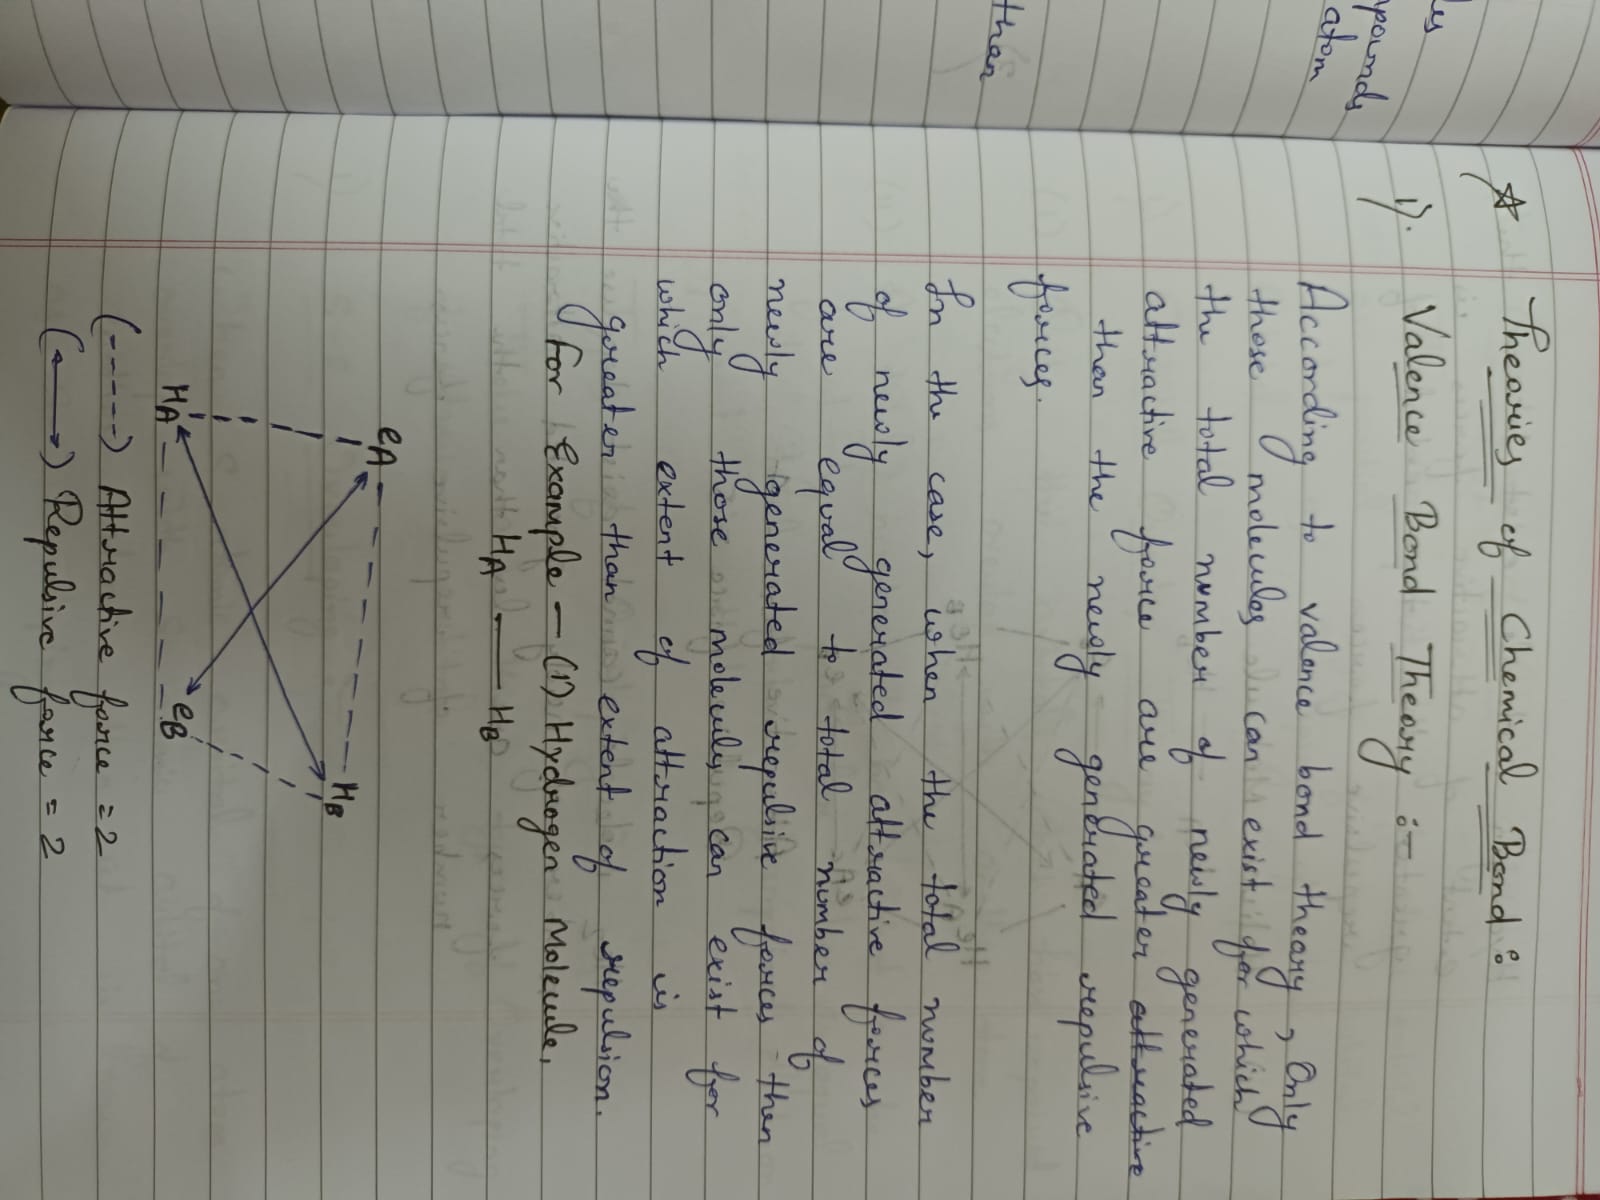 les
mpounds
atom
than
☆ Theories of Chemical Bond :
1). Valence Bond Theory :-
According to valence bond theory, Only
those molecules can exist for which
the total number of newly generated
attractive force are greater attractive
than the newly generated repulsive
forces.
In the case, when the total number
of newly generated attractive forces
are equal to total number of
newly generated repulsive forces then
only those molecules can exist for
which extent of attraction is
greater than extent of repulsion.
For Example - (1) Hydrogen Molecule,
HA — HB
eA
HB
HA
eB
(-----) Attractive force = 2
(↔) Repulsive force = 2